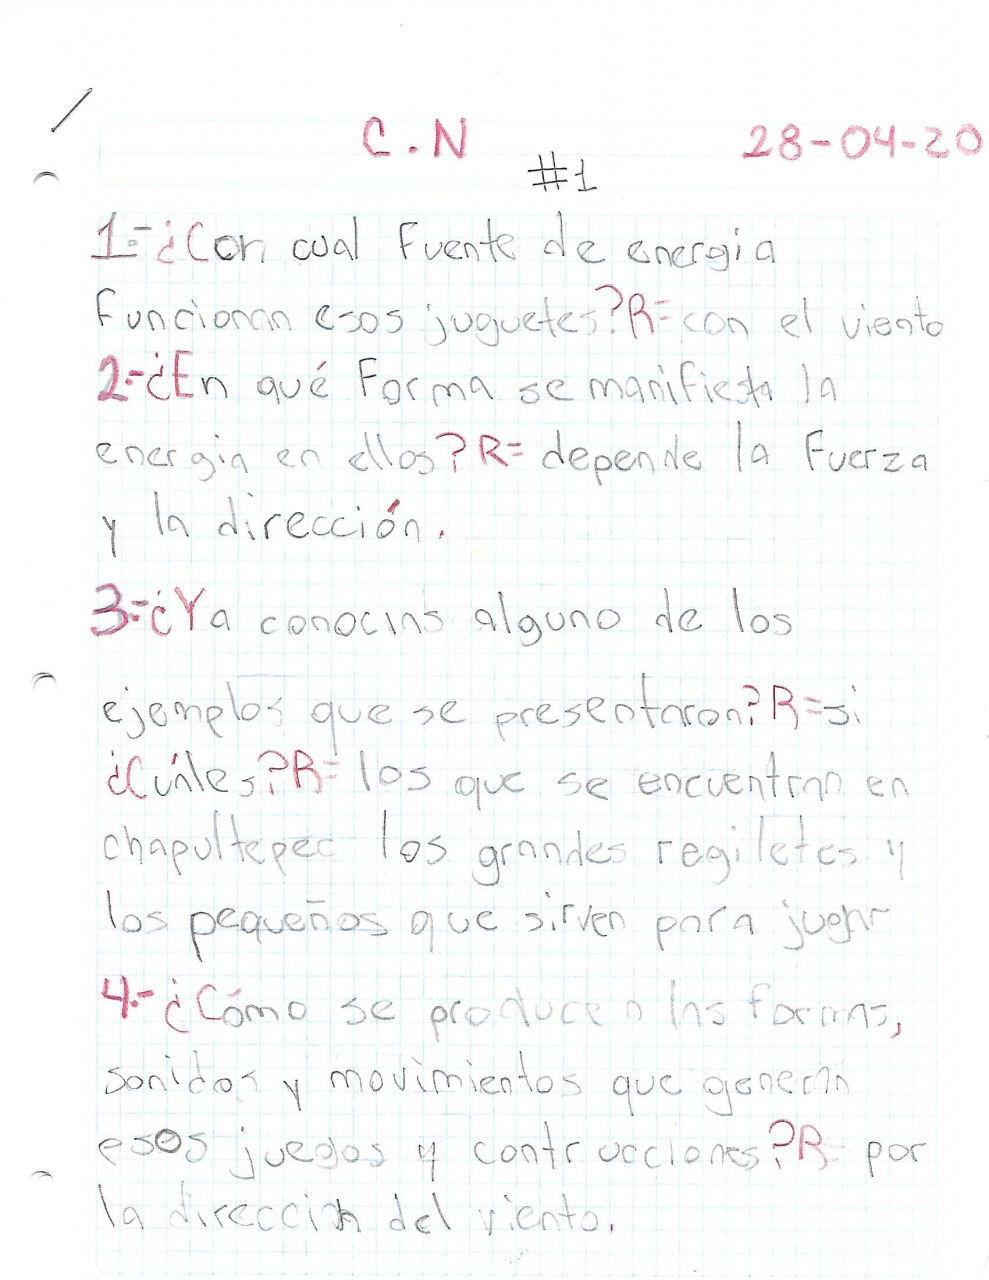 C.N 28-04-20
#1
1.-¿Con cual fuente de energia
funcionan esos juguetes?R=con el viento
2.-¿En qué forma se manifiesta la
energia en ellos?R= depende la fuerza
y la dirección.
3.-¿Ya conocias alguno de los
ejemplos que se presentaron?R=si
¿Cuáles?R= los que se encuentran en
chapultepec los grandes regiletes y
los pequeños que sirven para jugar
4.-¿Cómo se producen las formas,
sonidos y movimientos que generan
esos juegos y contrucciones?R= por
la direccion del viento.